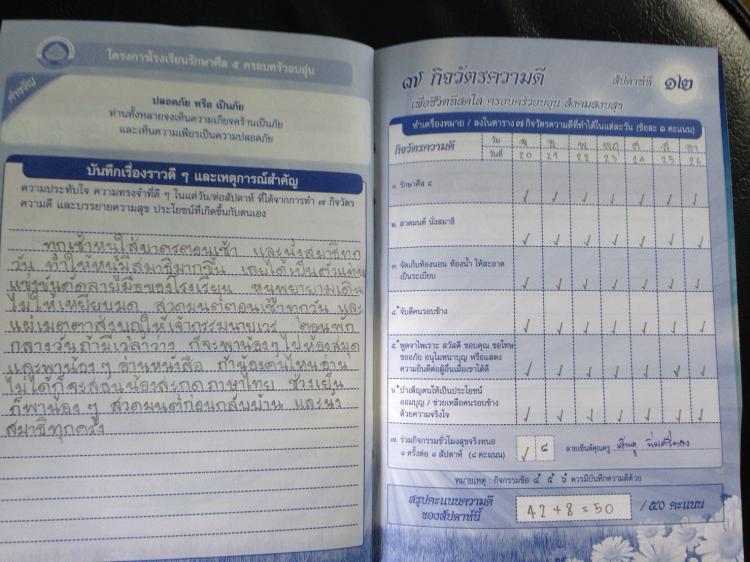 โครงการโรงเรียนรักษาศีล ๕ ครอบครัวอบอุ่น
คำขวัญ
ปลอดภัย หรือ เป็นภัย
ท่านทั้งหลายจงเห็นความเกียจคร้านเป็นภัย
และเห็นความเพียรเป็นความปลอดภัย
บันทึกเรื่องราวดี ๆ และเหตุการณ์สำคัญ
ความประทับใจ ความทรงจำที่ดี ๆ ในแต่วัน/ต่อสัปดาห์ ที่ได้จากการทำ ๗ กิจวัตร
ความดี และบรรยายความสุข ประโยชน์ที่เกิดขึ้นกับตนเอง
ทุกเช้าหนูใส่บาตรตอนเช้า และนั่งสมาธิทุก
วัน ทำให้หนูมีสมาธิมากขึ้น เคยได้เป็นตัวแทน
แข่งขันคัดลายมือของโรงเรียน หนูพยายามเดิน
ไม่ให้เหยียบมด สวดมนต์ตอนเช้าทุกวัน และ
แผ่เมตตาส่งบุญให้เจ้ากรรมนายเวร ตอนพัก
กลางวันถ้ามีเวลาว่าง ก็จะพาน้องๆไปห้องสมุด
และพาน้องๆ อ่านหนังสือ ถ้าน้องคนไหนอ่าน
ไม่ได้ก็จะสอนน้องสะกดภาษาไทย ช่วงเย็น
ก็พาน้องๆ สวดมนต์ก่อนกลับบ้าน และนั่ง
สมาธิทุกครั้ง
๗ กิจวัตรความดี สัปดาห์ที่ ๑๒
เพื่อชีวิตที่สดใส ครอบครัวอบอุ่น สังคมสงบสุข
ทำเครื่องหมาย / ลงในตาราง ๗ กิจวัตรความดีที่ทำได้ในแต่ละวัน (ข้อละ ๑ คะแนน)
กิจวัตรความดี
วัน จ อ พ พฤ ศ ส อา
วันที่ 20 21 22 23 24 25 26
๑. รักษาศีล ๕ ✓ ✓ ✓ ✓ ✓ ✓ ✓
๒. สวดมนต์ นั่งสมาธิ ✓ ✓ ✓ ✓ ✓ ✓ ✓
๓. จัดเก็บห้องนอน ห้องน้ำ ให้สะอาด
เป็นระเบียบ ✓ ✓ ✓ ✓ ✓ ✓ ✓
๔. จับดีคนรอบข้าง ✓ ✓ ✓ ✓ ✓ ✓ ✓
๕. พูดจาไพเราะ สวัสดี ขอบคุณ ขอโทษ
ขออภัย อนุโมทนาบุญ หรือแสดง
ความยินดีต่อผู้อื่นเมื่อเขาได้ดี ✓ ✓ ✓ ✓ ✓ ✓ ✓
๖. บำเพ็ญตนให้เป็นประโยชน์
ออมบุญ / ช่วยเหลือคนรอบข้าง
ด้วยความจริงใจ ✓ ✓ ✓ ✓ ✓ ✓ ✓
๗. ร่วมกิจกรรมชั่วโมงสุขจริงหนอ
๑ ครั้งต่อ ๑ สัปดาห์ (๘ คะแนน) ✓ ๘ ลายเซ็นต์คุณครู
หมายเหตุ : กิจกรรมข้อ ๔ ๕ ๖ ควรมีบันทึกความดีด้วย
สรุปคะแนนความดี
ของสัปดาห์นี้ 42 + 8 = 50 / ๕๐ คะแนน